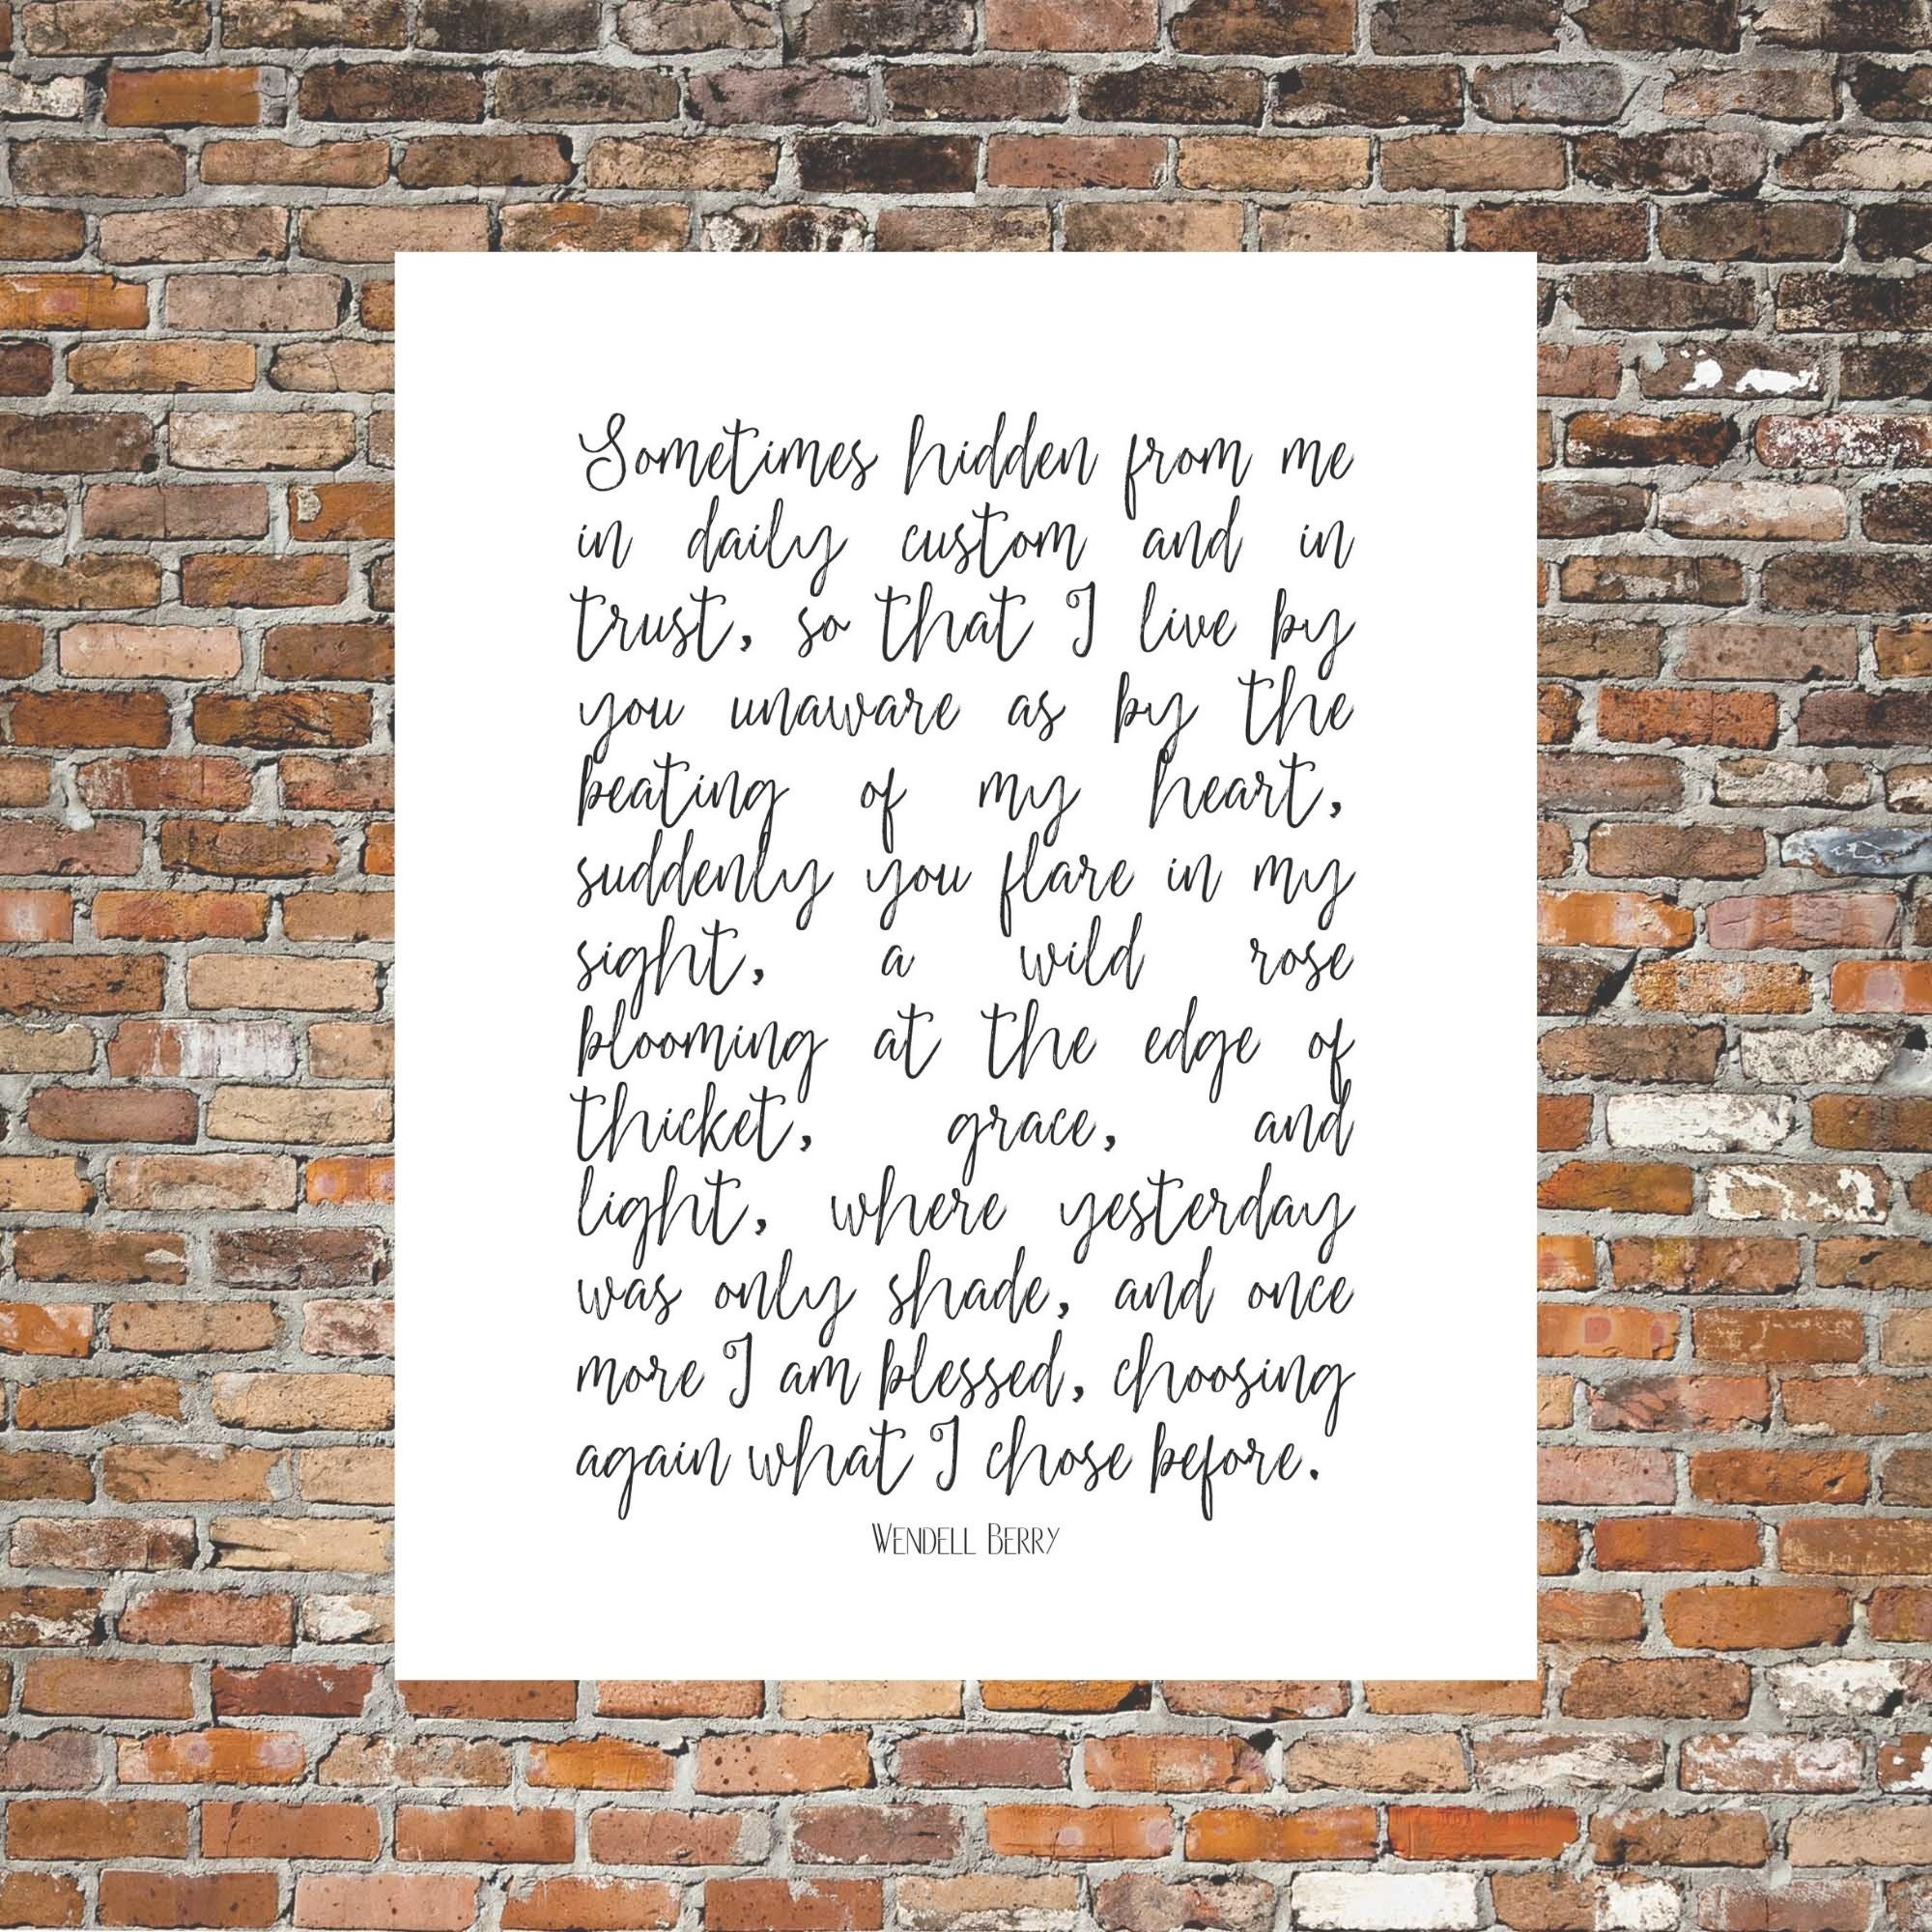 Sometimes hidden from me
in daily custom and in
trust, so that I live by
you unaware as by the
beating of my heart,
suddenly you flare in my
sight, a wild rose
blooming at the edge of
thicket, grace, and
light, where yesterday
was only shade, and once
more I am blessed, choosing
again what I chose before.
Wendell Berry